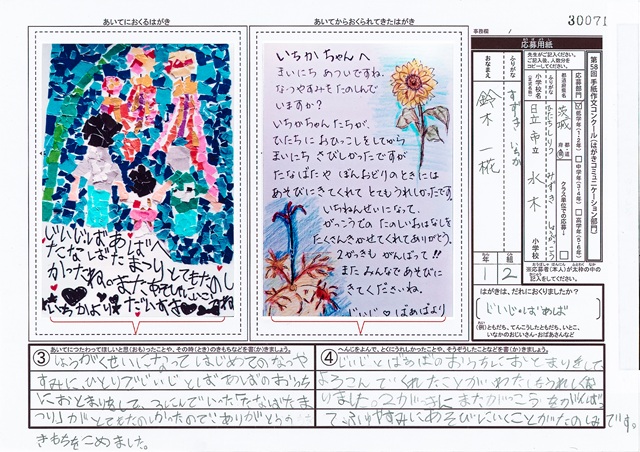 あいてにおくるはがき
じいじ・ばあばへ
たなばたまつりとてもたのし
かったね。またあそびにいこ
いちかより だいすき
あいてからおくられてきたはがき
いちかちゃんへ
まいにち あついですね。
なつやすみを たのしんで
いますか?
いちかちゃんたちが、
ひたちにおひっこしをしてから
まいにち さびしかったですが
たなばたや ぼんおどりのときには
あそびにきてくれて とてもうれしかったです。
いちねんせいになって、
がっこうでの たのしいおはなしを
たくさんきかせてくれてありがとう。
2がっきも がんばって!!
また みんなであそびに
きてくださいね。
じいじ ♡ ばあばより
30071
事務欄
応募用紙
第58回 手紙作文コンクール〈はがきコミュニケーション部門〉
応募部門
低学年(1・2年)
中学年(3・4年)
高学年(5・6年)
都道府県名
茨城
クラス単位での応募
ふりがな
小学校名
日立市立 水木
小学校
ふりがな
すずき いちか
おなまえ
鈴木 一椛
年
組
1
2
※応募者(本人)が太枠の中の
記入をしてください。
はがきは、だれにおくりましたか?
じいじ・ばあば
(例)ともだち、てんこうしたともだち、いとこ、
いなかのおじいさん・おばあさんなど
③
あいてにつたわってほしいと思(おも)ったことや、その時(とき)のきもちなどを書(か)きましょう。
しょうがくせいになって はじめてのなつや
すみに、ひとりでじいじとばあばのおうち
におとまりをして、
「たなばたま
つり」がとてもたのしかったのでありがとうの
きもちをこめました。
④
へんじをよんで、とくにうれしかったことや、そうぞうしたことなどを書(か)きましょう。
じいじとばあばのおうちにおとまりをして
よろこんでくれたことがわかったらうれしくな
りました。2がっきにまたがっこうをがんばっ
て ふゆやすみにあそびにいくことがたのしみです。